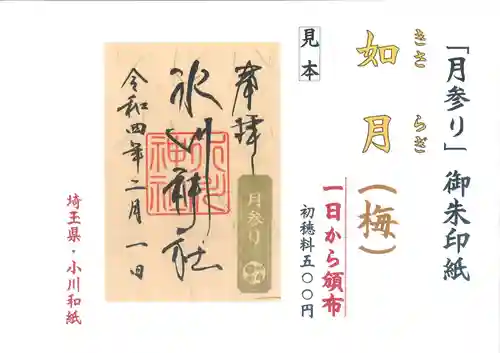 「月参り」御朱印紙
きさらぎ
如月(梅)
一日から頒布
初穂料五〇〇円
見本
奉拝
月参り
氷川神社
氷川神社
令和四年二月一日
埼玉県・小川和紙